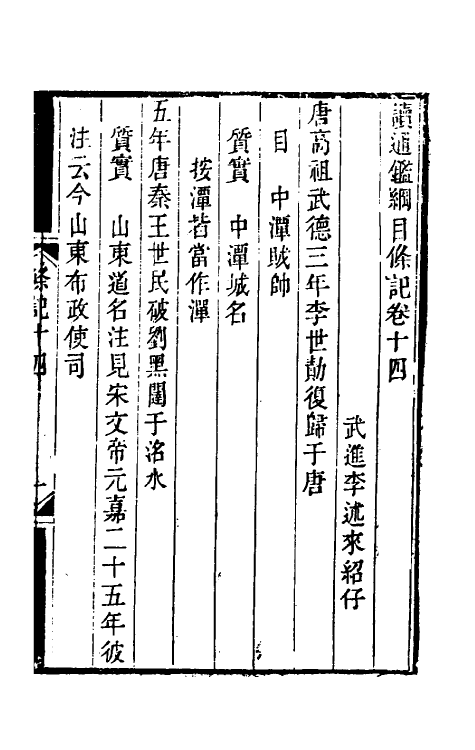 讀通鑑綱目條記卷十四
武進李述來紹仔
唐高祖武德三年李世勣復歸于唐
目　中潭賊帥
質實　中潭城名
按潭皆當作潬
五年唐秦王世民破劉黑闥于洺水
質實　山東道名注見宋文帝元嘉二十五年彼
注云今山東布政使司
條記十四
一